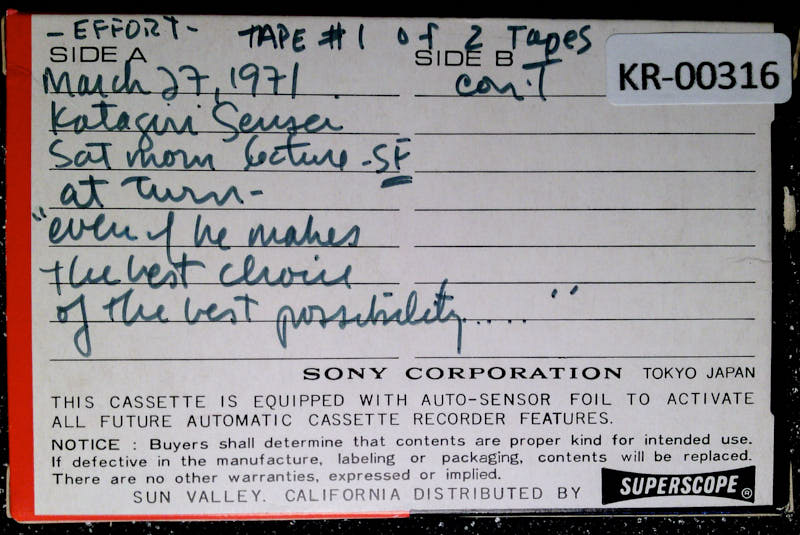 - EFFORT - TAPE #1 of 2 Tapes
SIDE A SIDE B
KR-00316
March 27, 1971 con.T
Katagiri Sensei
Sat morn lecture - SF
at turn -
"even if he makes
the best choice
of the best possibility....."
SONY CORPORATION TOKYO JAPAN
THIS CASSETTE IS EQUIPPED WITH AUTO-SENSOR FOIL TO ACTIVATE
ALL FUTURE AUTOMATIC CASSETTE RECORDER FEATURES.
NOTICE : Buyers shall determine that contents are proper kind for intended use.
If defective in the manufacture, labeling or packaging, contents will be replaced.
There are no other warranties, expressed or implied.
SUN VALLEY. CALIFORNIA DISTRIBUTED BY SUPERSCOPE®